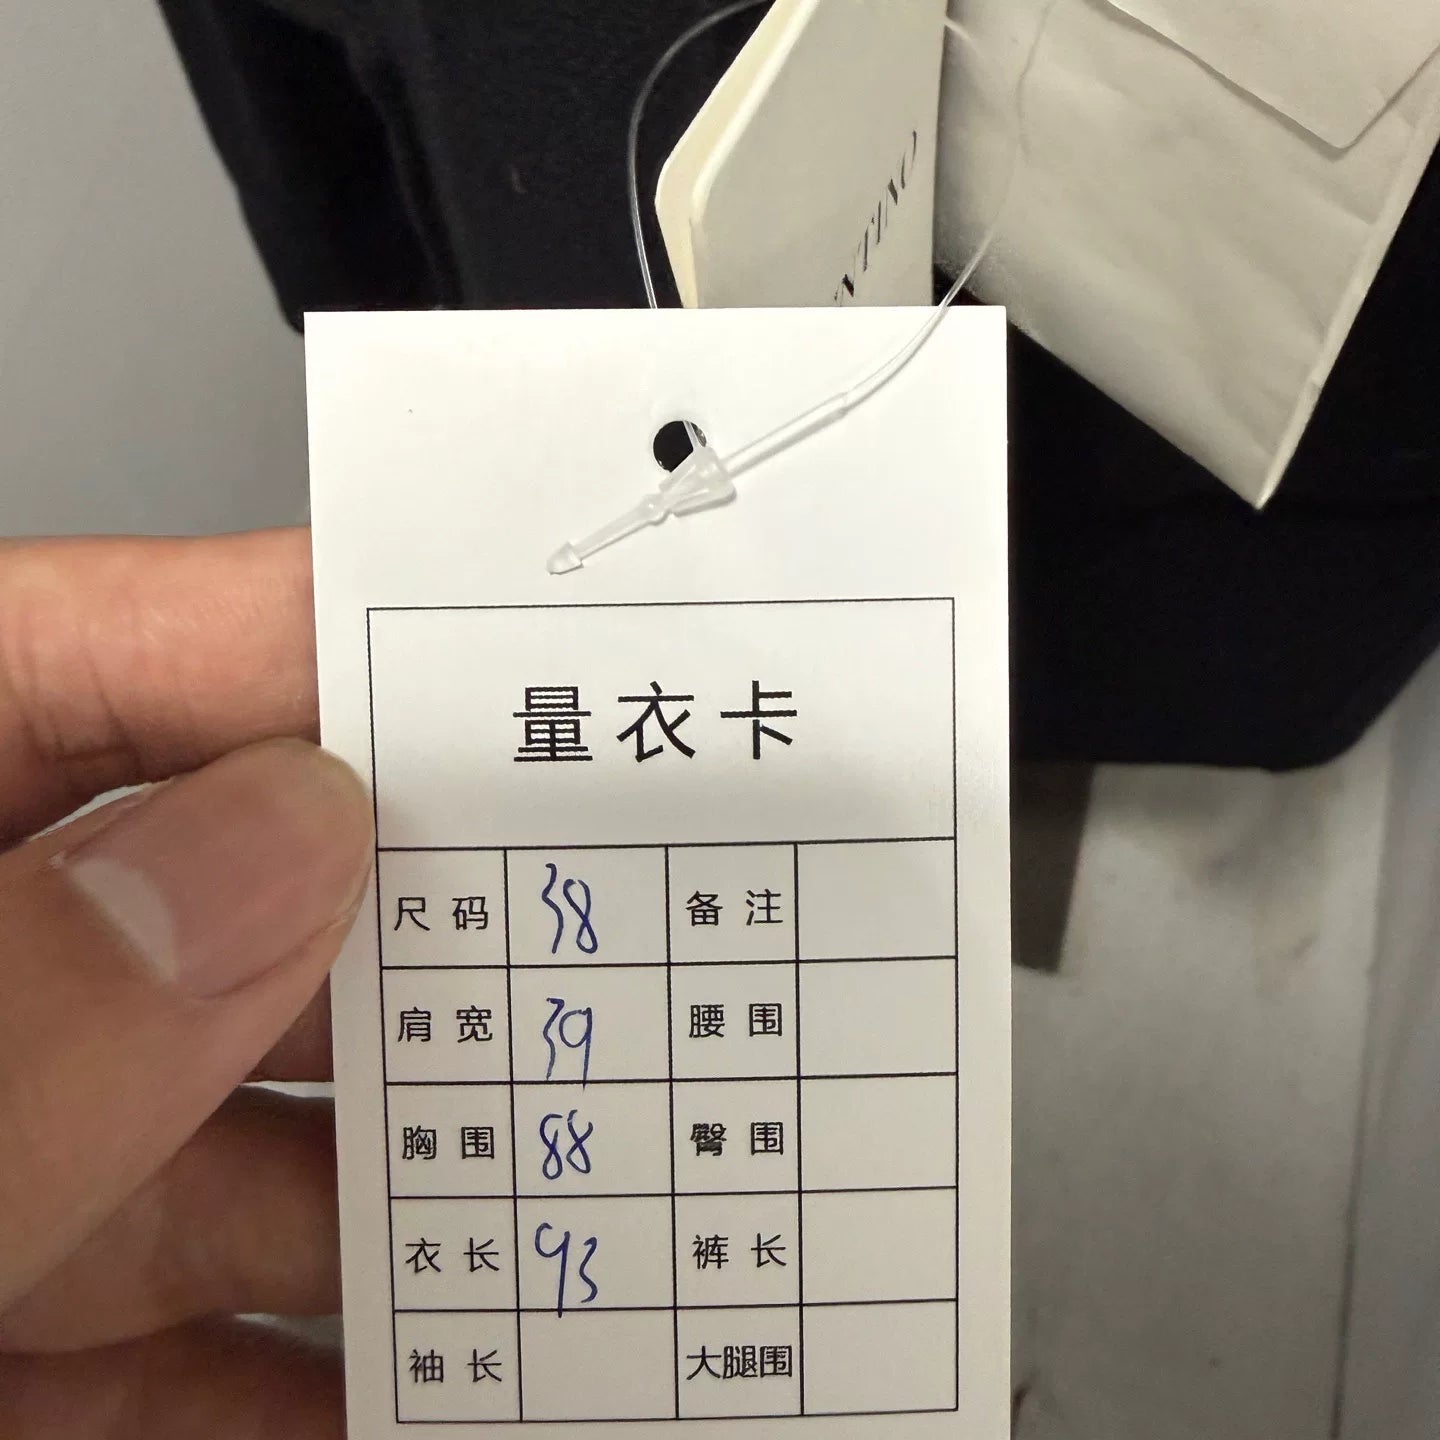 量衣卡
尺码 38 备注
肩宽 39 腰围
胸围 88 臀围
衣长 93 裤长
袖长 大腿围